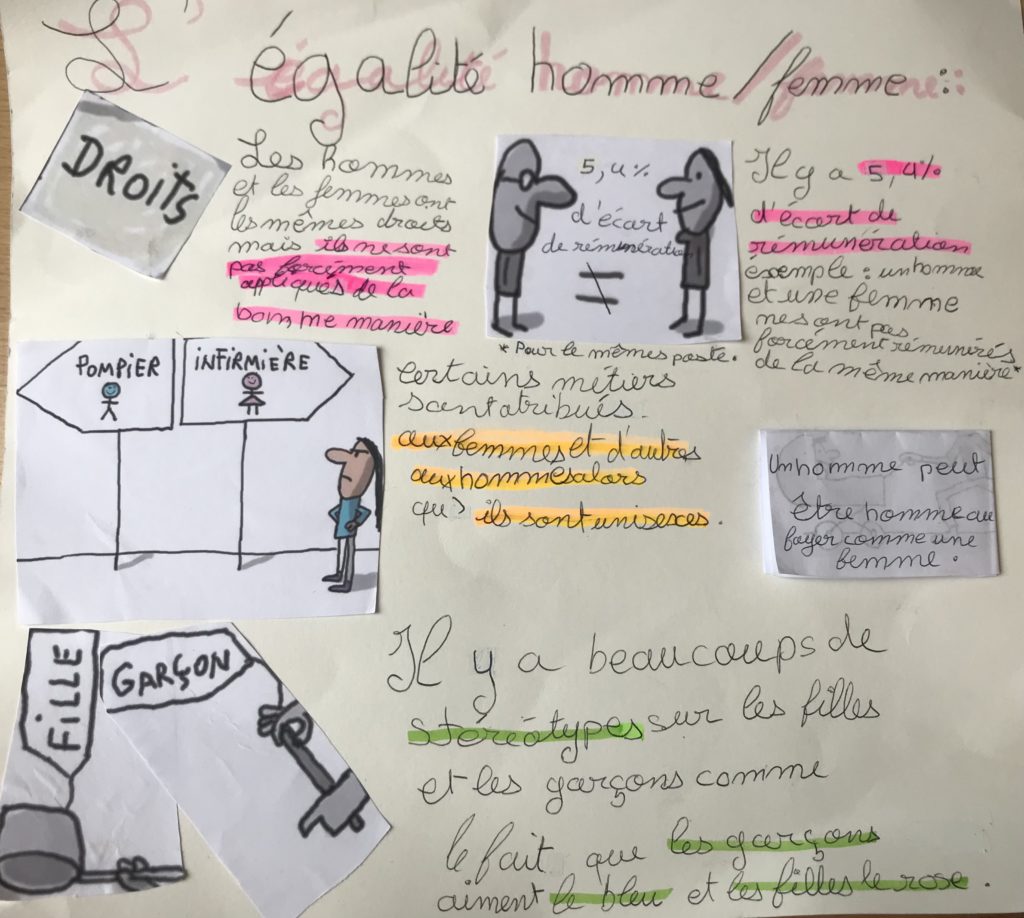 L'égalité homme/femme::
DROITS
Les hommes
et les femmes ont
les mêmes droits
mais ils ne sont
pas forcément
appliqués de la
bomme manière
5,4%
d'écart
de rémunération
≠
* Pour le mêmes poste.
Il y a 5,4%
d'écart de
rémunération
exemple : un homme
et une femme
ne sont pas
forcément rémunirés
de la même manière*
POMPIER
INFIRMIÈRE
certains métiers
sont atribués
aux femmes et d'autres
aux hommes alors
qu'ils sont unisexes.
Un homme peut
être homme au
foyer comme une
femme.
FILLE
GARÇON
Il y a beaucoups de
stéréotypes sur les filles
et les garçons comme
le fait que les garçons
aiment le bleu et les filles le rose.